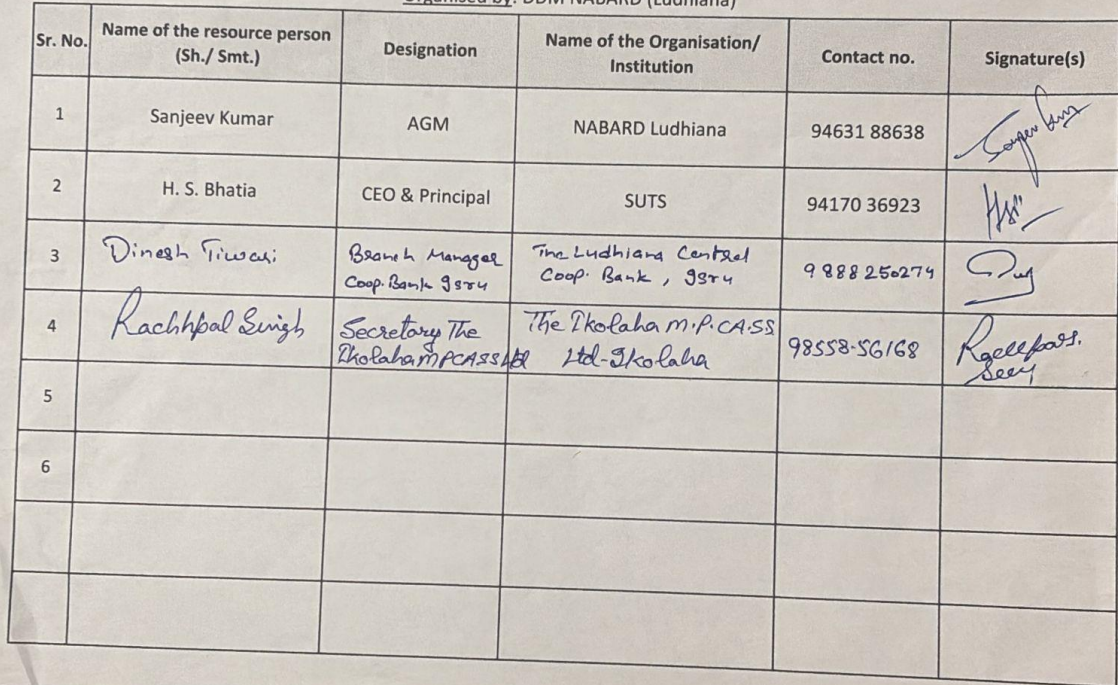 Organised by: DDM NABARD (Ludhiana)
Sr. No. Name of the resource person (Sh./ Smt.) Designation Name of the Organisation/ Institution Contact no. Signature(s)
1 Sanjeev Kumar AGM NABARD Ludhiana 94631 88638
2 H. S. Bhatia CEO & Principal SUTS 94170 36923
3 Dinesh Tiwari Branch Manager The Ludhiana Central
Coop. Bank Isru Coop. Bank, Isru 9888250274
4 Rachhpal Singh Secretary The The Ikolaha M.P.CA.SS
Ikolaha MPCASS Ltd Ltd-Ikolaha 98558-56168
5
6